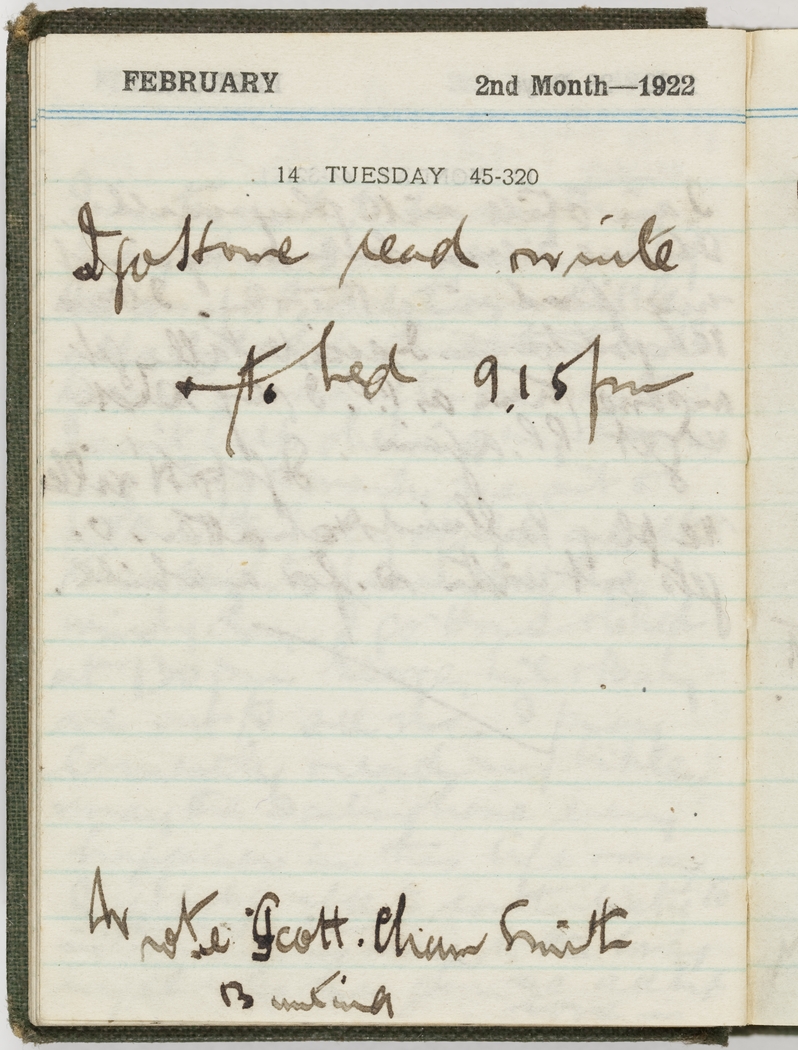 FEBRUARY 2nd Month—1922
14 TUESDAY 45-320
I go Home read write
+ to bed 9.15 pm
Wrote Scott. Cham Smith
Bunting